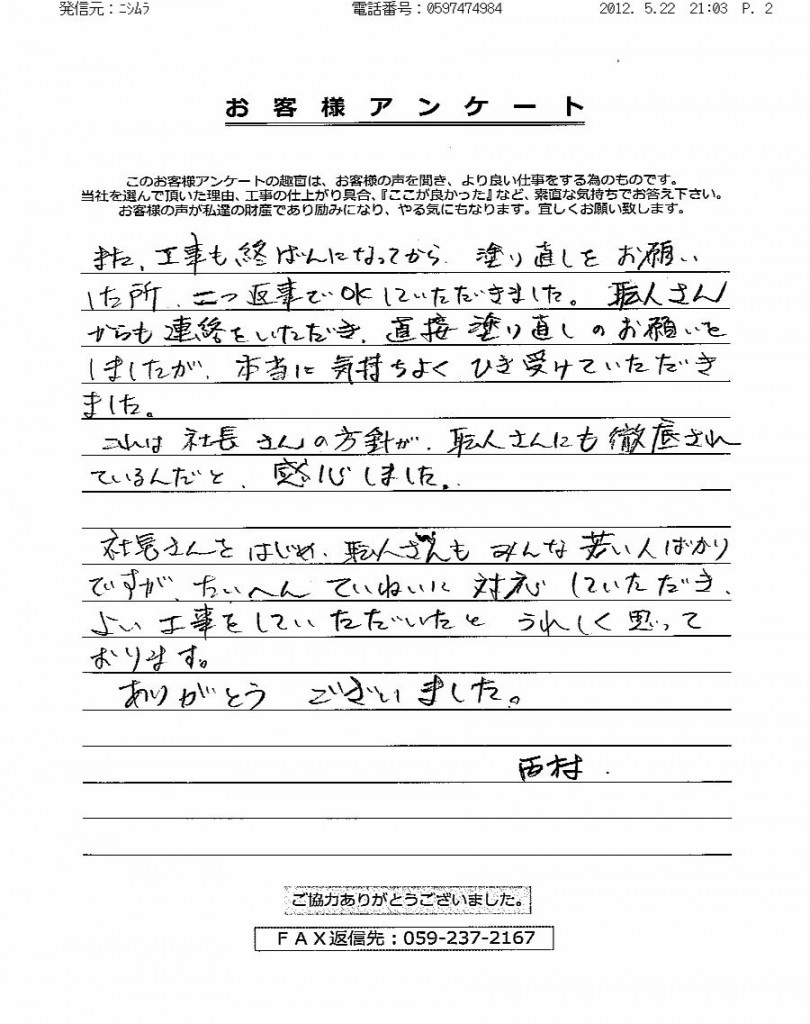 発信元:ﾆｼﾑﾗ 電話番号:0597474984 2012. 5.22 21:03 P. 2
お客様アンケート
このお客様アンケートの趣旨は、お客様の声を聞き、より良い仕事をする為のものです。
当社を選んで頂いた理由、工事の仕上がり具合、『ここが良かった』など、素直な気持ちでお答え下さい。
お客様の声が私達の財産であり励みになり、やる気にもなります。宜しくお願い致します。
また、工事も終ばんになってから 塗り直しを お願い
した所、二つ返事でOKしていただきました。 職人さん
からも連絡をいただき、直接 塗り直しのお願いを
しましたが、本当に気持ちよく ひき受けていただき
ました。
これは 社長さんの方針が、職人さんにも徹底され
ているんだと、感心しました。
社長さんをはじめ、職人さんも みんな 若い人ばかり
ですが、たいへん ていねいに 対応 していただき、
よい工事をしていただいたと うれしく思って
おります。
ありがとう ございました。
西村.
ご協力ありがとうございました。
FAX返信先:059-237-2167